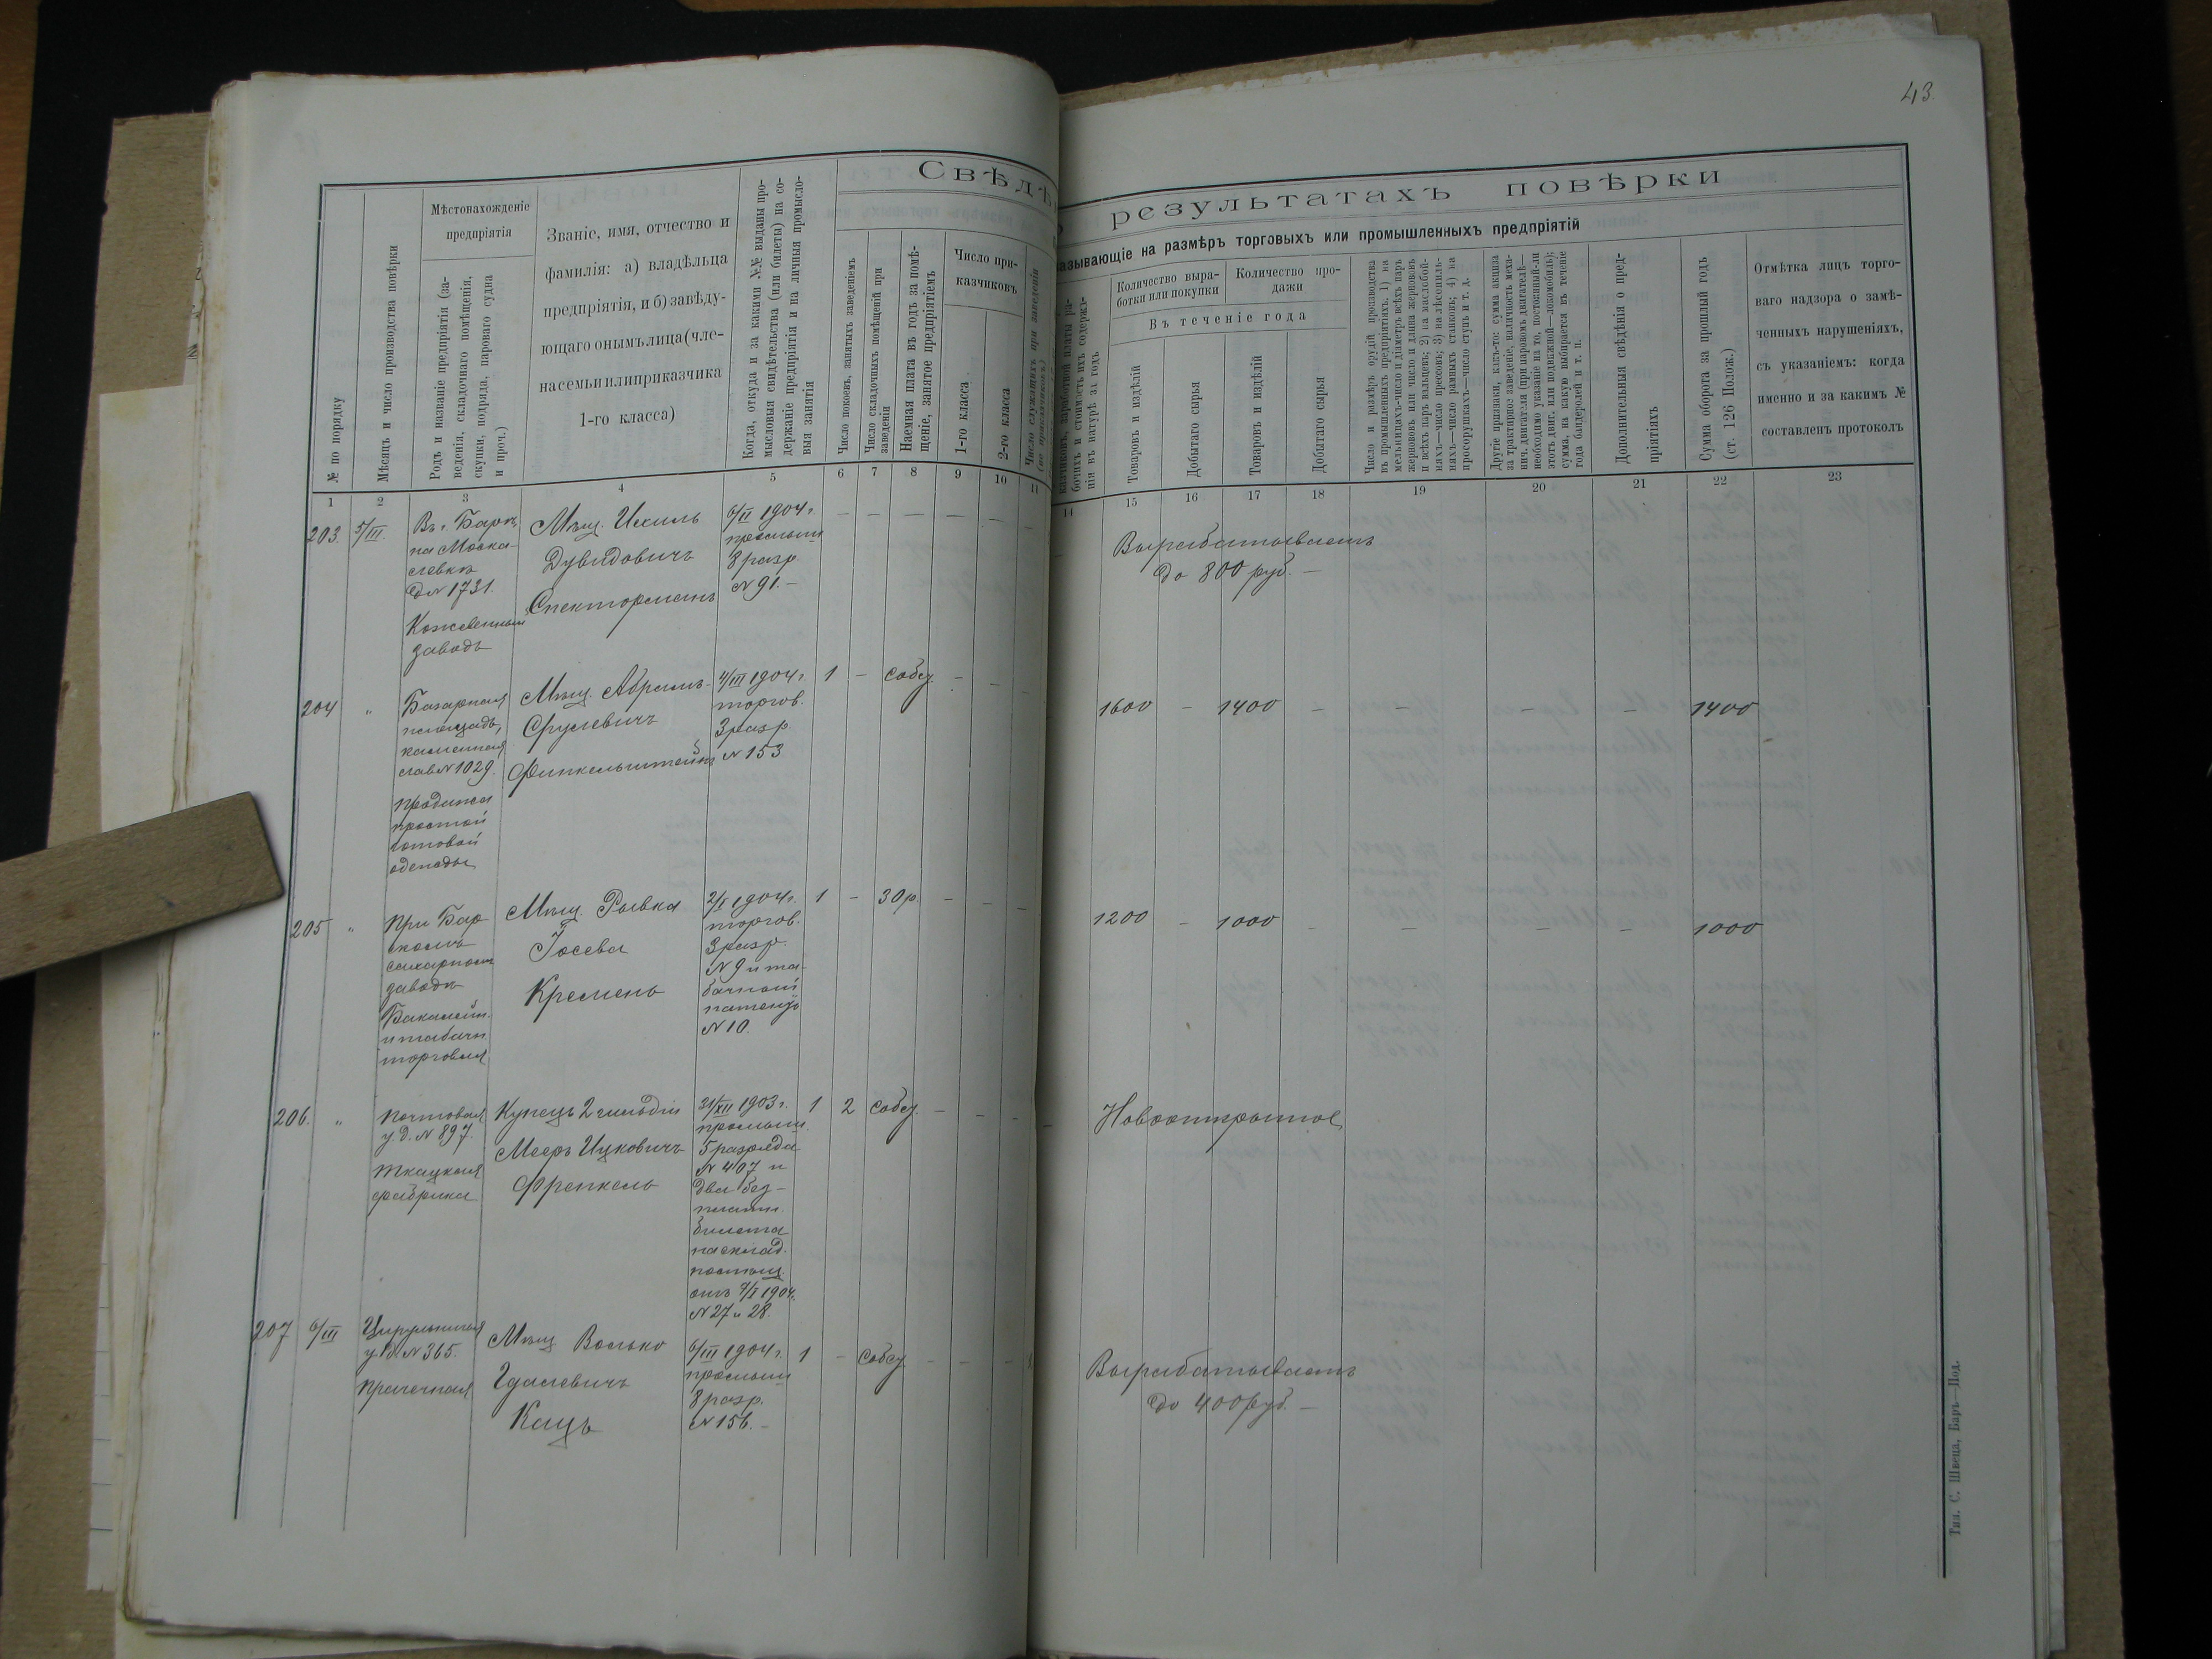 43.
Свѣдѣ
результатахъ повѣрки
азывающіе на размѣръ торговыхъ или промышленныхъ предпріятій
№ по порядку
Мѣсяцъ и число производства повѣрки
Мѣстонахожденіе
предпріятія
Родъ и названіе предпріятія (за-
веденія, складочнаго помѣщенія,
скупки, подряда, пароваго судна
и проч.)
Званіе, имя, отчество и
фамилія: а) владѣльца
предпріятія, и б) завѣду-
ющаго онымъ лица (чле-
на семьи или приказчика
1-го класса)
Когда, откуда и за какими №№ выданы про-
мысловыя свидѣтельства (или билеты) на со-
держаніе предпріятія и на личныя промысло-
выя занятія
Число покоевъ, занятыхъ заведеніемъ
Число складочныхъ помѣщеній при
заведеніи
Наемная плата въ годъ за помѣ-
щеніе, занятое предпріятіемъ
Число при-
казчиковъ
1-го класса
2-го класса
Число служащихъ при заведеніи
(не приказчиковъ)
бочихъ и стоимость ихъ содержа-
нія въ натурѣ за годъ
Количество выра-
ботки или покупки
Количество про-
дажи
Въ теченіе года
Товаровъ и издѣлій
Добытаго сырья
Товаровъ и издѣлій
Добытаго сырья
Число и размѣръ орудій производства
въ промышленныхъ предпріятіяхъ. 1) на
мельницахъ-число и діаметръ всѣхъ паръ
жернововъ или число и длина жернововъ
и всѣхъ паръ вальцевъ; 2) на маслобой-
няхъ—число прессовъ; 3) на лѣсопиль-
няхъ—число рамныхъ станковъ; 4) на
просорушкахъ—число ступъ и т. д.
Другіе признаки, какъ-то: сумма акциза
за трактирное заведеніе, наличность меха-
нич. двигателя (при паровомъ двигателѣ—
необходимо указаніе на то, постоянный-ли
этотъ двиг. или подвижной—локомобиль);
сумма, на какую выбирается въ теченіе
года бандеролей и т. п.
Дополнительныя свѣдѣнія о пред-
пріятіяхъ
Сумма оборота за прошлый годъ
(ст. 126 Полож.)
Отмѣтка лицъ торго-
ваго надзора о замѣ-
ченныхъ нарушеніяхъ,
съ указаніемъ: когда
именно и за какимъ №
составленъ протоколъ
1 2 3 4 5 6 7 8 9 10 11 14 15 16 17 18 19 20 21 22 23
203. 5/III.
Въ г. Барѣ,
на Моска-
левкѣ
д. № 1731.
Кожевенный
заводъ
Мѣщ. Ихиль
Дувидовичъ
Спекторманъ
6/II 1904 г.
промышл
8 разр
№ 91.—
— — — — — —
Вырабатываетъ
до 800 руб. —
204 „
Базарная
площадь,
каменная
лав № 1029.
продажа
простой
готовой
одежды
Мѣщ. Абрамъ-
Срулевичъ
Финкельштейнъ
4/III 1904 г.
торгов.
3 разр.
№ 153
1 — собст. — — —
1600 — 1400 — — — — 1400
205 „
При Бар
скомъ
сахарномъ
заводѣ
Бакалейн.
и табачн
торговля
Мѣщ. Рывка
Іосева
Кремень
2/I 1904 г.
торгов.
3 разр.
№ 9 и та-
бачный
патентъ
№ 10.
1 — 30 р. — — —
1200 — 1000 — — — — 1000
206. „
Почтовая
у. д. № 897.
Ткацкая
фабрика
Купецъ 2 гильдіи
Мееръ Ицковичъ
Френкель
31/XII 1903 г.
промышл.
5 разряда
№ 407 и
два без-
платн.
билета
на склад.
помѣщ.
отъ 7/I 1904.
№ 27 и 28.
1 2 собст. — — —
Новооткрытое
207 6/III
Цирульничая
у. д. № 365.
Прачечная
Мѣщ Волько
Гдалевичъ
Кацъ
6/III 1904 г.
промышл
8 разр.
№ 156. —
1 — собст. — — —
Вырабатываетъ
до 400 руб. —
Тип. С. Швеца, Баръ—Под.